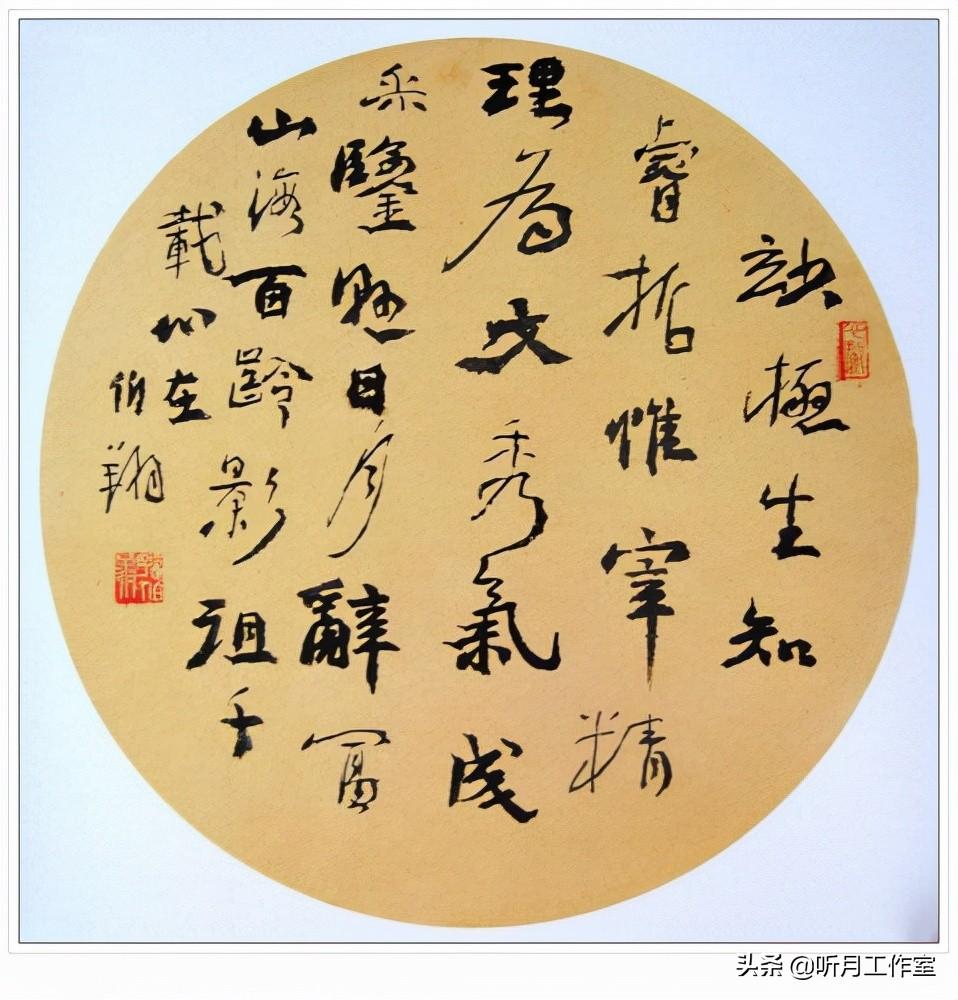 玅極生知
睿哲惟宰精
理為文秀氣成
采鑒懸日月辭富
山海百齡影徂千
載心在
伯翔
头条 @听月工作室